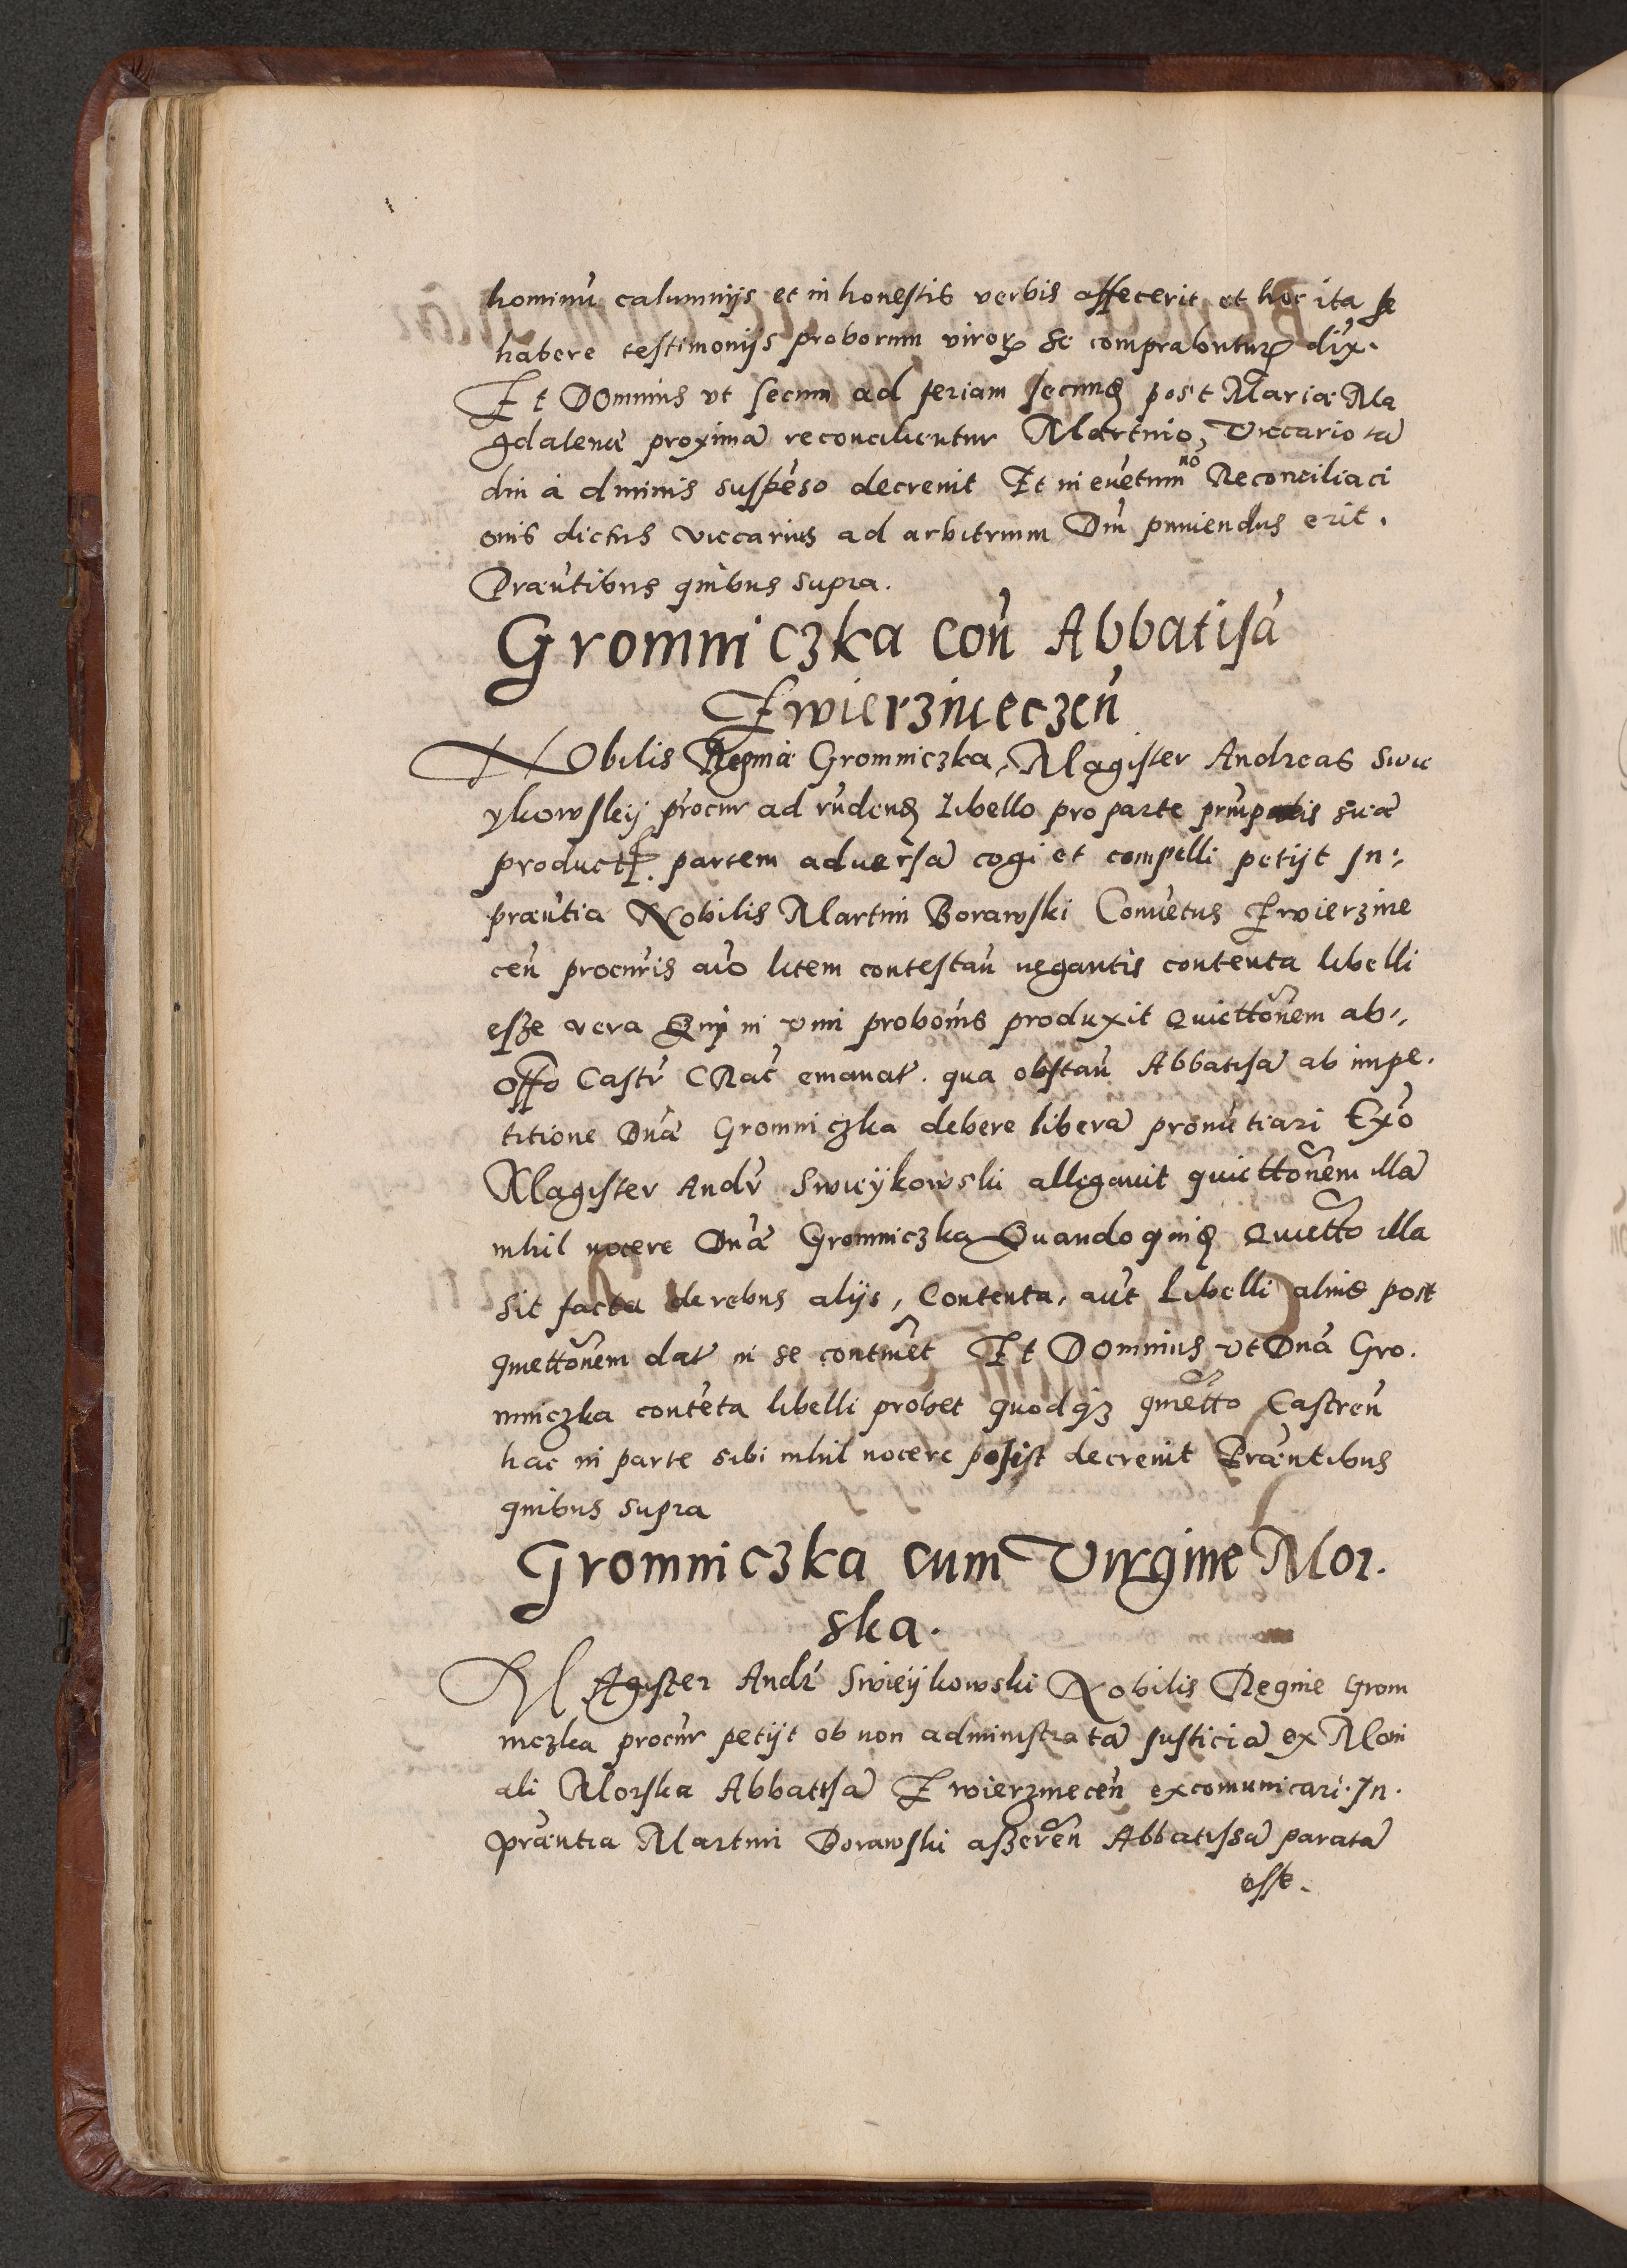 hominū calumnijs et in honestis verbis affecerit et hoc ita se
habere testimonijs proborum viroꝝ se comprabonturꝝ dix.
Et Dominus vt secum ad feriam secund post Mariæ Ma
gdalenæ proximā reconcilientur Martino, Viccario tā
diu á diuinis suspēso decreuit Et in evētum nō Reconciliaci
onis dictus viccarius ad arbitrium Dni puniendus erit.
Præn̄tibus quibus supra.
Gromniczka con̄ Abbatisā
Zwierzinieczen̄
NObilis Regina Gromniczka, Magister Andreas Swie
ykowskij procur ad rn̄dend Libello pro parte suæ
product. partem aduersā cogi et compelli petijt In:,
præn̄tia Nobilis Martini Borawski Conuētus Zwierzinie
cen̄ procuris aīo litem contestan̄ negantis contenta libelli
esse vera Qui in vim probo͞nis produxit Quietto͞nem ab:,
offo Castr̄ CRac̄ emanat. qua obstan̄ Abbatisā ab impe.
titione Dn̄æ Gromniczka debere liberā pronūtiari Exo͞
Magister Andr̄ Swieÿkowski allegauit quietto͞nem illā
nihil nocere Dn̄æ Gromniczka Quandoquid Quietto illa
sit facta de rebus alijs, Contenta, aūt Libelli alius post
quietto͞nem dat in se contin̄et Et Dominus vt Dn̄a Gro.
mniczka contēta libelli probet quodqꝫ quietto Castren̄
hac in parte sibi nihil nocere posist decreuit Præn̄tibus
quibus supra
Gromniczka cum Virgine Mor.
ska.
MAgister Andr̄ Swieÿkowski Nobilis Regine Grom
niczka procur petijt ob non administratā Justiciā ex Moni
ali Morska Abbatisā Zwierzinecen̄ excomunicari. In.
præn̄tia Martini Borawski asseren̄ Abbatissā paratā
esse.